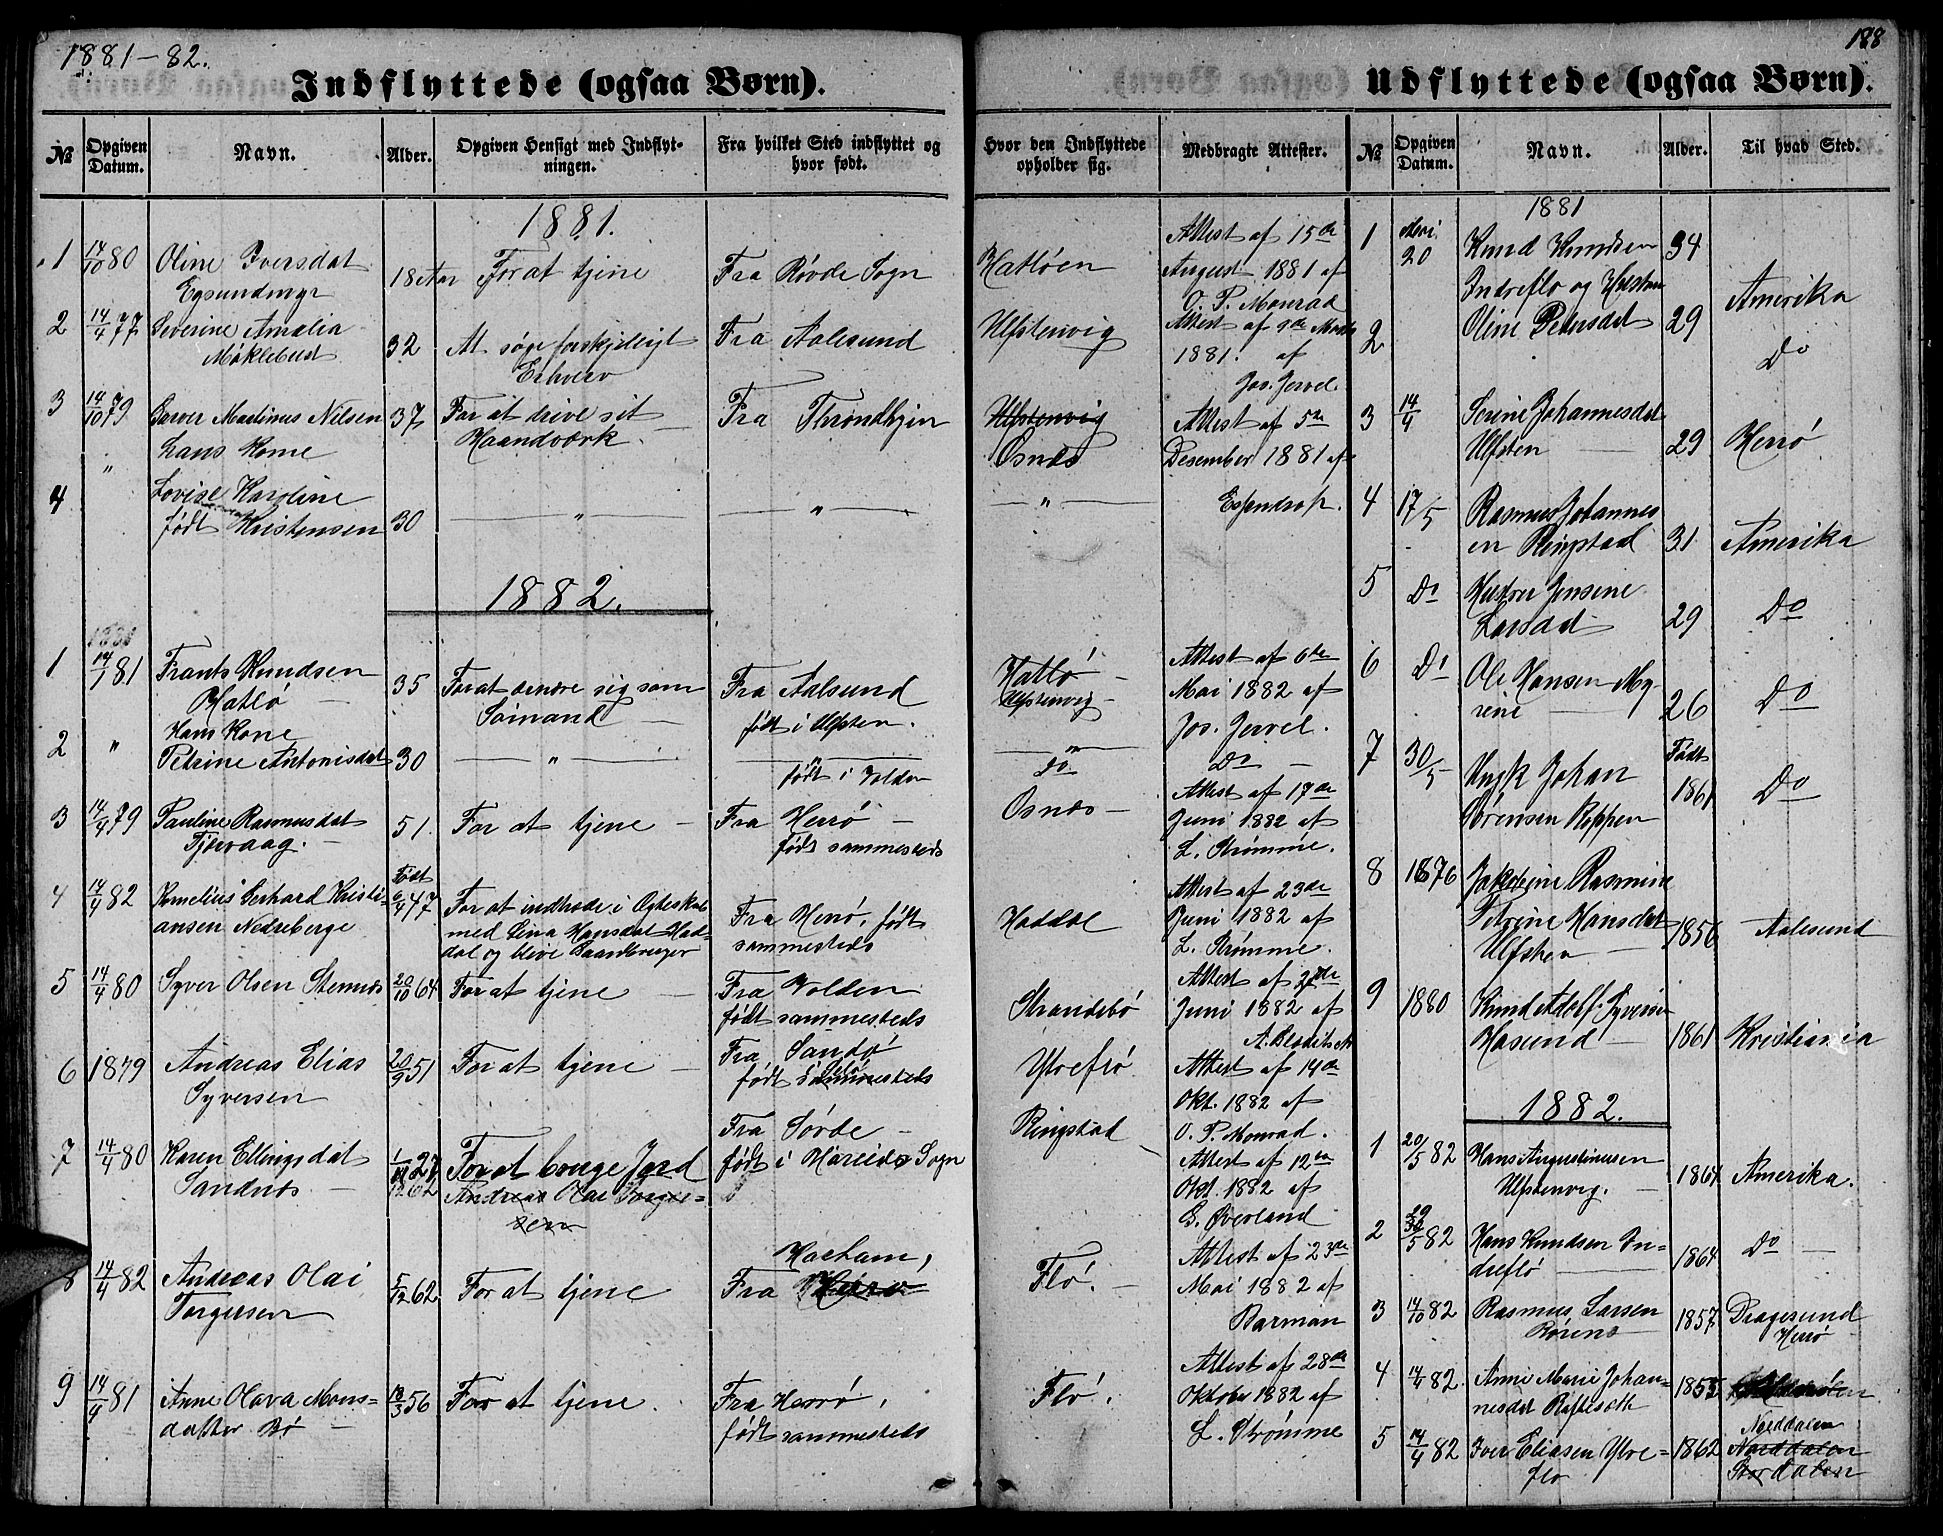 1881-82.
188
Indflyttede (ogsaa Børn).
Udflyttede (ogsaa Børn).
№ Opgiven Datum. Navn. Alder. Opgiven Hensigt med Indflyt-ningen. Fra hvilket Sted indflyttet og hvor født. Hvor den Indflyttede opholder sig. Medbragte Attester.
№ Opgiven Datum. Navn. Alder. Til hvad Sted.
1881.
1 14/10 80 Oline Iversdat 18 Aar For at tjene Fra Røvde Sogn Hatløen Attest af 15de
Egsundmyr August 1881 af
O. P. Monrad
2 14/4 77 Severine Amalia 32 At søge forskjelligt Fra Aalesund Ulfstenvig Attest af 9de
Møklebust Erhverv 1881. af
Jos. Jervel.
3 14/10 79 Martinus Nilsen 37 For at drive sit Fra Throndhjin Ulfstenvig Attest af 5te
Hans Kone Haandværk. Osnes Desember 1881 af
4 " Lovise Karoline
født Kristensen 30 " " "
1882.
1 14/1 81 Frants Knudsen 35 For at ernære sig som Fra Aalsund Hatlø Attest af 6te
Hatlø Sømand født i Ulfsten. Ulfstenvig Mai 1882 af
Hans Kone Jos. Jervel.
2 " Petrine Antonisdat 30 " " født i Volden Do Do
3 14/4 79 Pauline Rasmusdat 51 For at tjene Fra Herrø Osnes Attest af 17de
Tjørvaag. født sammesteds Juni 1882 af
L. Strømme.
4 14/4 82 Kornelius Gerhard Kristi- Født 6/4 47 For at indtræde i Ægteskab Fra Herrø, født Haddal Attest af 23de
ansen Nedreberge med Lina Hansdat Had- sammesteds Juni 1882 af
dal og blive Gaardbruger L. Strømme.
5 14/4 80 Syver Olsen Stennes 20/10 64 For at tjene Fra Volden Strandebø Attest af 27de
født sammesteds Juni 1882 af
6 1879 Andreas Elias 20/9 51 For at tjene Fra Sandø Ytreflø Attest af 14de
Syversen født sammesteds Okt. 1882 af
O. P. Monrad.
7 14/4 80 Karen Ellingsdat 27 For at bruge Jord Fra Sørde Ringstad Attest af 12te
Sandnes Andreas Olai Torger= født i Hareids Sogn Okt. 1882 af
sen G. Øverland
8 14/4 82 Andreas Olai 5/12 62 For at tjene Fra Haeham, Flø. Attest af 23de
Torgersen Herrø Mai 1882 af
Barman
9 14/4 81 Anne Olava Mons= 18/3 56 For at tjene. Fra Herrø, Flø. Attest af 28de
datter Bø født sammesteds Oktober 1882 af
L. Strømme
1881
1 Mai 20 Knud Knudsen 34
Indreflø og Hustru Amerika
2 Oline Petersdat 29 Do
3 14/4 Serine Johannesdat
Ulfsten 29 Herrø
4 17/5 Rasmus Johannes
en Ringstad 31 Amerika
5 Do Hustru Jensine
Larsdat 29 Do
6 Do Ole Hansen My-
rene 26 Do
7 30/5 Johan Født
Sørensen Koppen 1861 Do
8 1876 Jakobine Rasmine
Petrine Hansdat
Ulfsten 1856 Aalesund
9 1880 Knud Adolf Syversen
Hasund 1861 Kristiania
1882.
1 20/5 82 Hans Augustinusen
Ulfstenvig. 1864 Amerika.
2 29/5 82 Hans Knudsen In-
dreflø 1864 Do
3 14/10 82 Rasmus Larsen 1857 Dragesund
Rørene Herrø
4 14/4 82. Anne Marie Johan-
nesdat Rafteseth 1855
5 14/4 82 Iver Eliasen Ytre- 1862 Norddalen
flø Norddalen
Stordalen